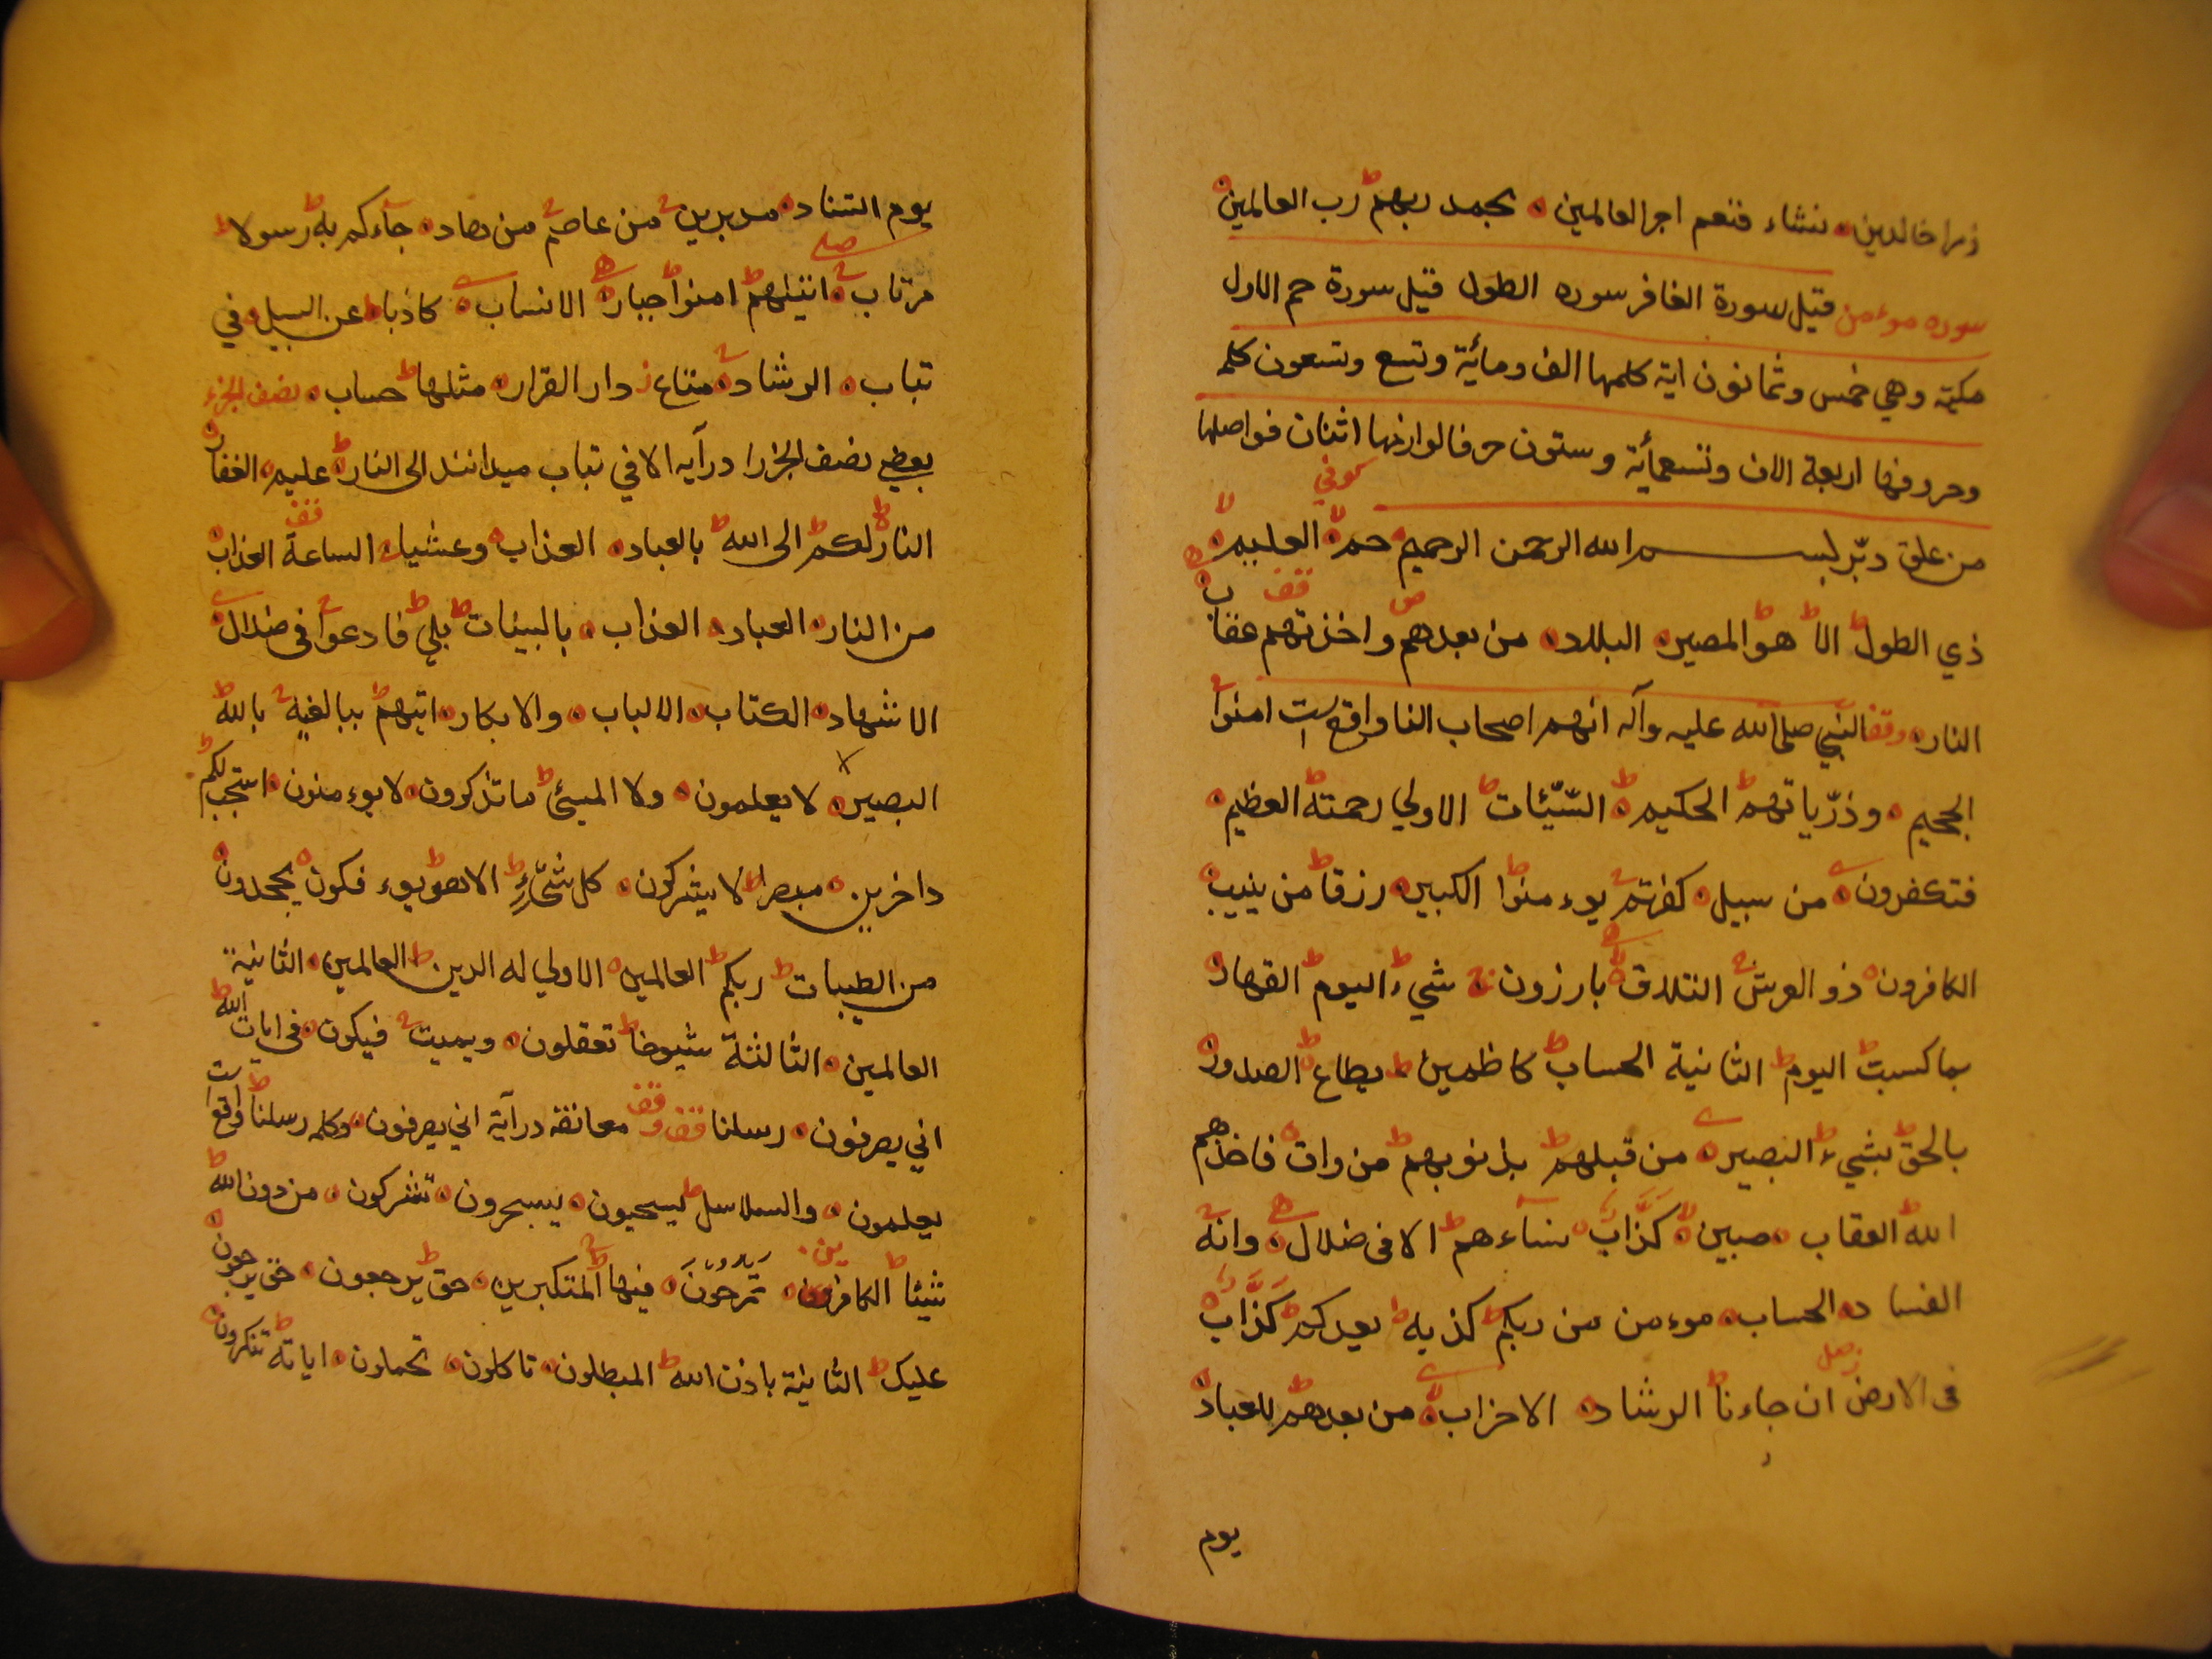 زمرا خالدين نشاء فنعم اجر العالمين بحمد ربهم رب العالمين
سوره موءمن قيل سورة الغافر سوره الطول قيل سورة حم الاول
مكية وهي خمس وثمانون اية كلمها الف ومائية وتسع وتسعون كلم
وحروفها اربعة الاف وتسعمأية وستون حرفا لوازمها اثنان فواصلها
كوفي
من علق دبّر بسم الله الرحمن الرحيم حم العليم
ذي الطول الا هو المصير البلاد من بعدهم واخذتهم عقاب
النار وقف النّبي صلى الله عليه وآله انهم اصحاب النار واقع است امنوا
الجحيم وذرّياتهم الحكيم السّيّئات الاولي رحمته العظيم
فتكفرون من سبيل كفرتم يوءمنوا الكبير رزقا من ينيب
الكافرون ذو العرش التلاق بارزون شيء اليوم القهار
بما كسبت اليوم الثانية الحساب كاظمين يطاع الصدور
بالحق بشيء البصير من قبلهم بذنوبهم من واق فاخذهم
الله العقاب مبين كَذَّابٌ نساءهم الا في ضلال وانه
الفساد الحساب موءمن من ربكم كذبه يعدكم كَذَّابٌ
في الارض ان جاءنا الرشاد الاحزاب من بعدهم للعباد
يوم
يوم التناد مدبرين من عاصم من هاد جآءكم به رسولا
مرتاب اتيٰهم امنوا جبار الاسباب كاذبا عن السبيل في
تباب الرشاد متاع دار القرار مثلها حساب نصف الجزء
بعضي نصف الجزء را درآيه الا في تباب ميدانند الى النار عليم الغفار
النار لكم الى الله بالعباد العذاب وعشيا الساعة العذاب
من النار العباد العذاب بالبينات بلي فادعوا في ضلال
الاشهاد الكتاب الالباب والابكار اتيهم ببالغيه بالله
البصير لا يعلمون ولا المسئ ما تذكرون لا يوءمنون استجب لكم
داخرين مبصرا لا يشكرون كل شيّءٍ الا هو يوءفكون يجحدون
من الطيبات ربكم العالمين الاولي له الدين العالمين الثانية
العالمين الثالثة شيوخا تعقلون ويميت فيكون في ايات الله
اني يصرفون رسلنا قف وقف معانقه درآية اني يصرفون وكلمه رسلنا واقع است
يعلمون والسلاسل يسحبون يسجرون تشركون من دون الله
شيئا الكافرين تمرحون فيها المتكبرين حق يرجعون حق يرجعون
عليك الثانية باذن الله المبطلون تاكلون تحملون اياته تنكرون